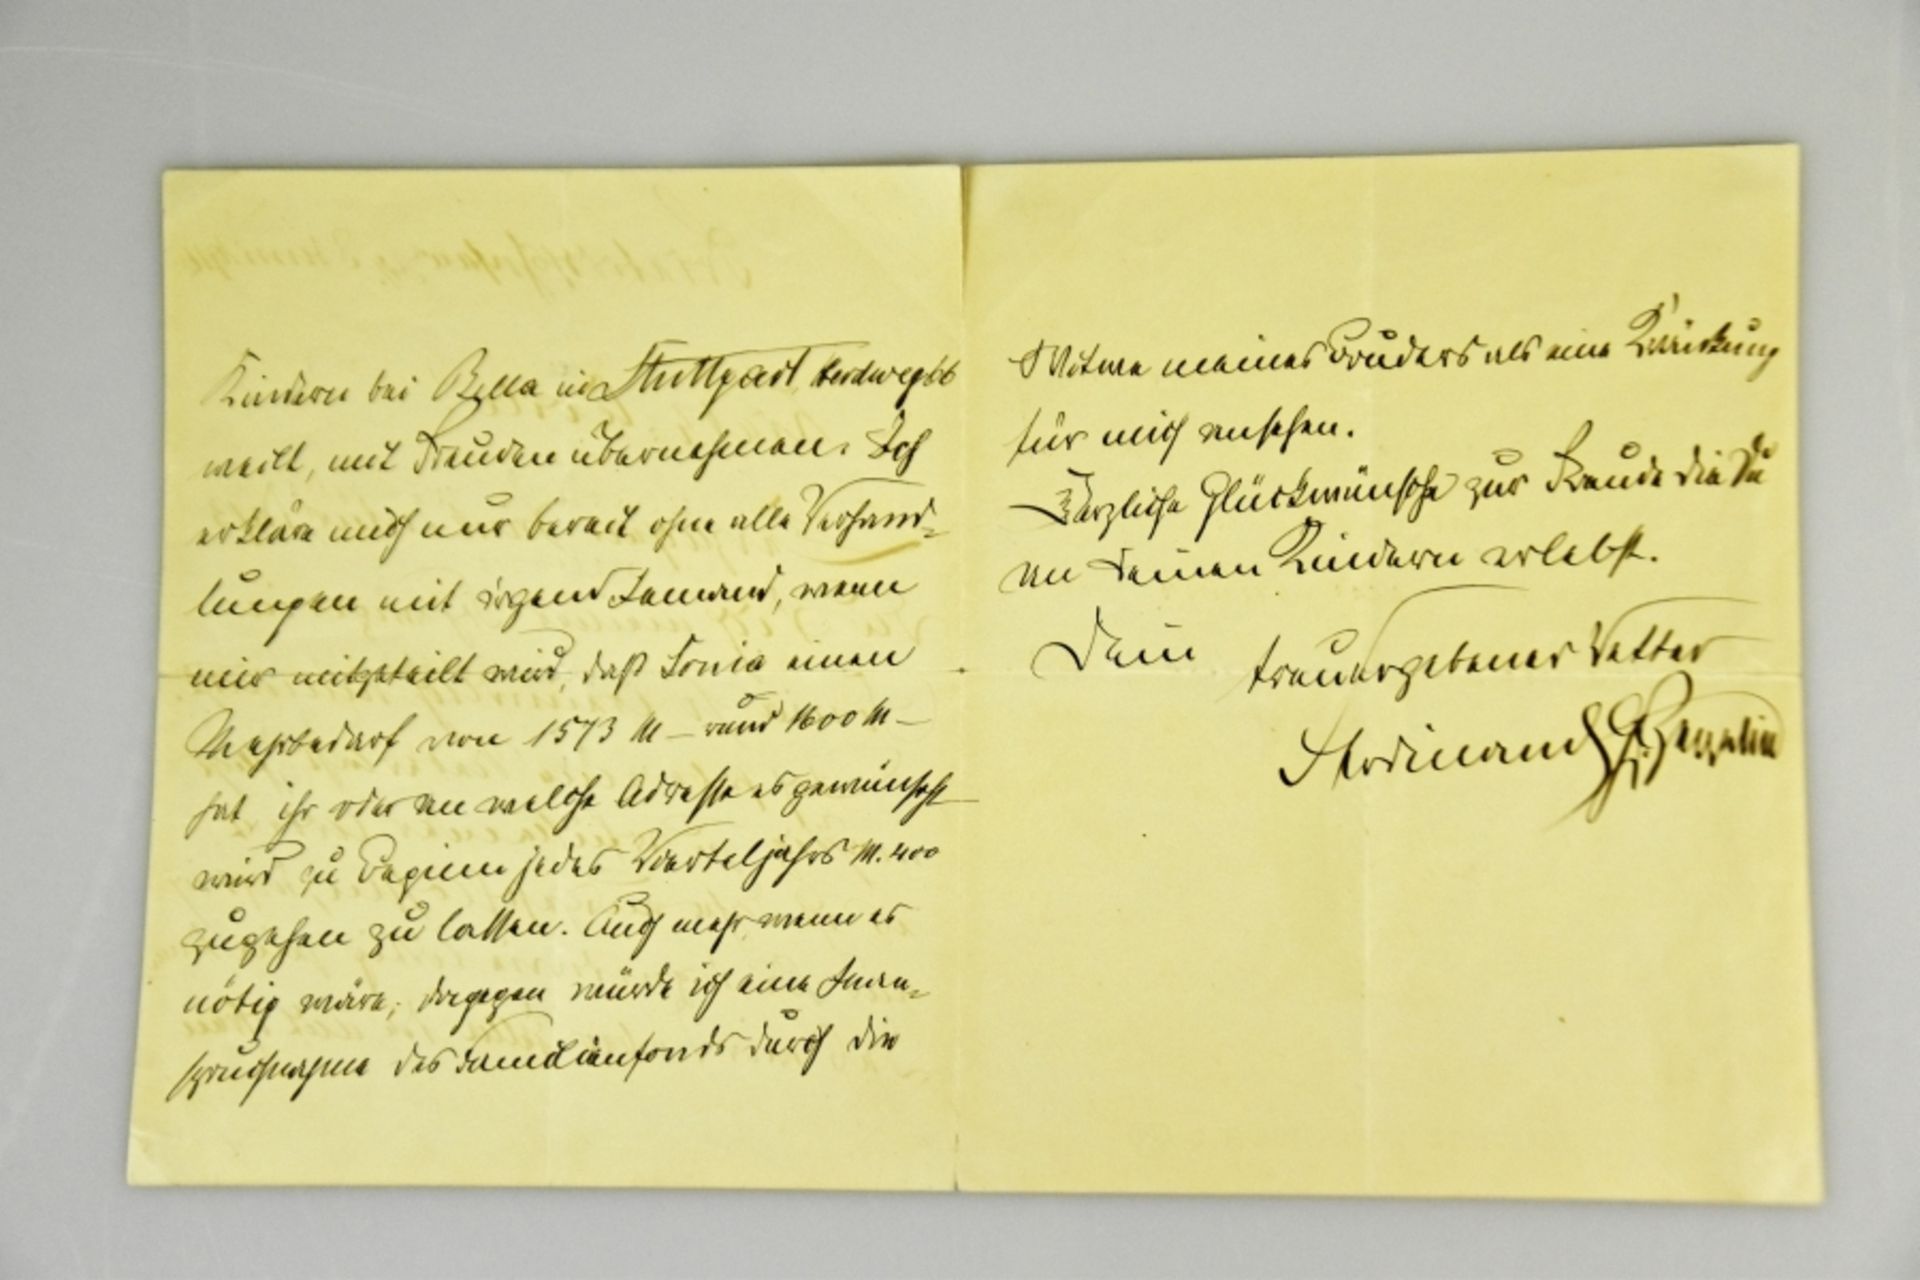 Kindern bei Bella in Stuttgart, Herdweg 66
weilt, mit Freuden übernehmen. Ich
erkläre mich nur bereit ohne alle Verhand=
lungen mit irgend Jemand, wenn
mir mitgeteilt wird, daß Sonia einen
Mehrbedarf von 1573 M – rund 1600 M –
hat ihr oder an welche Adresse es gewünscht
wird zu Beginn jedes Vierteljahrs M. 400
zugehen zu lassen. Auch mehr wenn es
nötig wäre; dagegen würde ich eine Inan=
spruchnahme des Familienfonds durch die
Witwe meines Bruders als eine Kränkung
für mich ansehen.
Herzliche Glückwünsche zur Freude die Du
an Deinen Kindern erlebst.
Dein treuergebener Vetter
Ferdinand Gf. Zeppelin